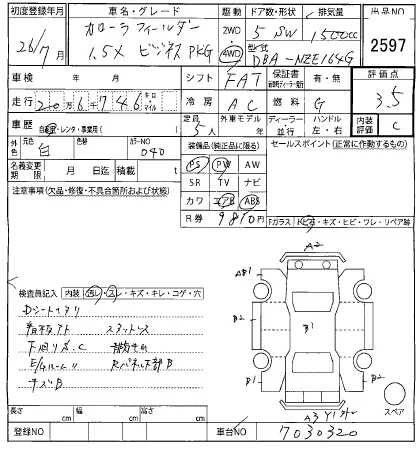 初度登録年月 車名・グレード 駆動 ドア数・形状 排気量 出品NO
26/7月 カローラ フィールダー 2WD 5 SW 1500cc
1.5X ビジネスPKG 4WD 型式 DBA-NZE164G 2597
車検 年 月 シフト FAT 保証書 有・無 評価点
走行 キロ マイル 冷房 AC 燃料 G 3.5
車歴 自家・レンタ・事業用( ) 定員 5人 外車モデル年 ディーラー 並行 ハンドル 左・右 内装評価 C
色 白 色替 カラーNO 040 装備品(純正品に限る) セールスポイント(正常に作動するもの)
名義変更期限 月 日迄 積載 t PS PW AW
注意事項(欠品・修復・不具合箇所および状態) SR TV ナビ
カワ エアB ABS
R券 9810円 Fガラス トビ石・キズ・ヒビ・ワレ・リペア跡
A2
AB1
B2 B1 B2
検査員記入 内装 汚レ・スレ・キズ・キレ・コゲ・穴
Dシートスリ
看板アト スタットレス
下回りサ、C
Rパネル下部B
キズB
B1 B2
A3 Y1
スペア
長さ cm 幅 cm 高さ cm
登録NO 車台NO 7030320